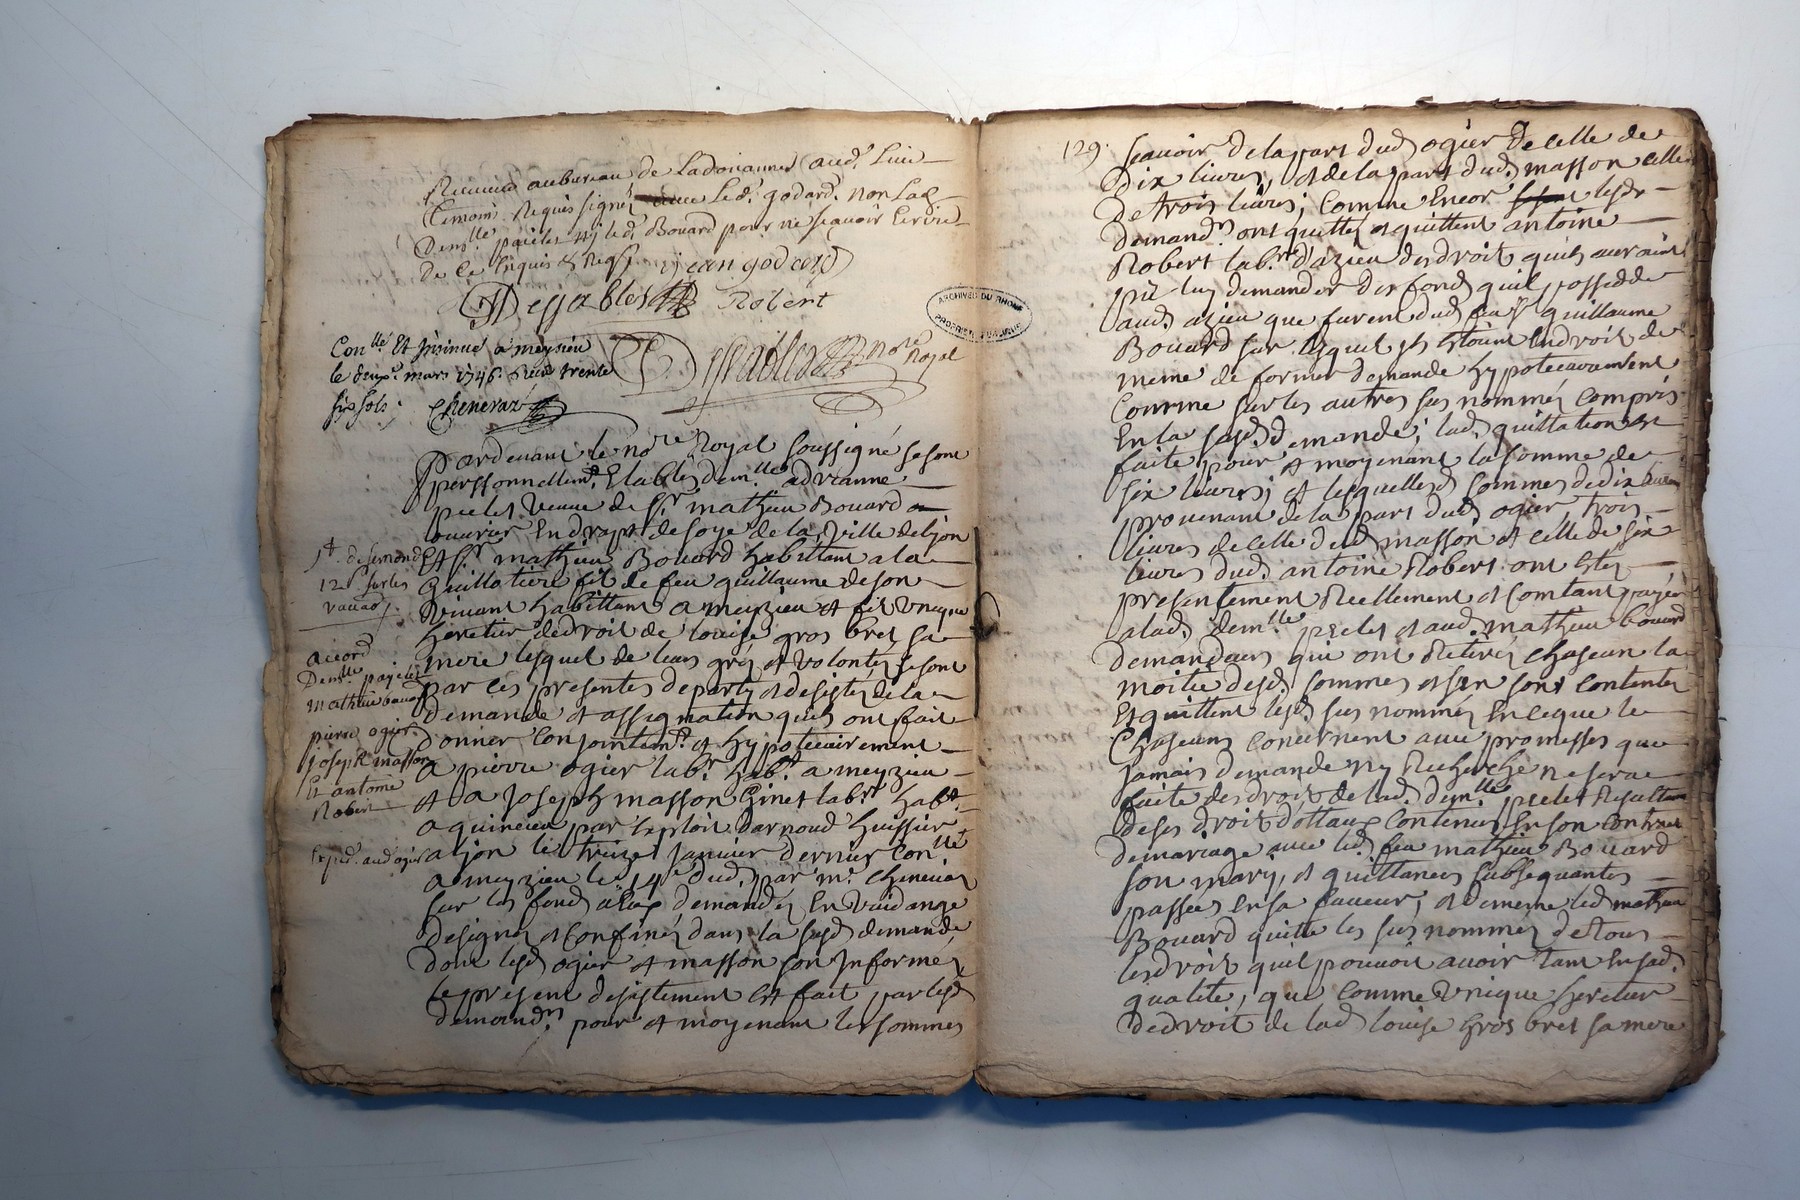 Receveur au bureau de La douanne audt Luin
temoins Requis signés avec Led. godard. non Lad.
Demlle paielet Ny led. Bouard pour ne scavoir Ecrire
de Ce Enquis & Reqs. jean godard
Dessables Robert
ARCHIVES DU RHONE
PROPRIETE PUBLIQUE
Conllé Et Insinué a meysieu
le deuxe. mars 1746. Recu trente
six sols; Cheneraz
Dessables Nore Royal
Pardevant le nore Royal soussigné se sont
personnellemt. Etablés demlle adrianne
pielet veuve de sr. mathieu Bouard
ouvrier En drapt de soye de la ville de lion
Et sr. mathieu Bouard habittant a la
Guillotiere fils de feu guillaume de son
vivant habittant a meyzieu et fils unique
heretier de droit de louise gros bret sa
mere lesquel de leurs gréz et volontéz se sont
par ces presentes departy et desistéz de la
demande et assignation quils ont fait
donner Conjointemt. et hypotecairement
a pierre ogier labr. habt. a meyzieu
et a Joseph masson Ginet labrt habt.
a quincieu par Exploit darnoud huissier
a lion le treize Janvier dernier Conllé
a meyzieu le 14e dud. par mr. cheneraz
sur les fonds a Eux demandéz En vuidange
designéz et Confinéz dans la susd. demande
dont lesd. ogier et masson son Informéz
le present desistement Est fait par lesd
demandrs. pour et moyenant les sommes
accord
Demlle payelet
mathieu bouard
pierre ogier
joseph masson
Et antoine
Robert
Exped. aud ogier
129.
scavoir de la part dud. ogier de celle de
dix livres, et de la part dud. masson celle
de trois livres; Comme Encor lesds
demandrs. ont quitté et quittent antoine
Robert labrt. d'azieu des droits quils auraint
pu luy demander des fonds quil possedde
aud. azieu que furent dud. feu sr guillaume
Bouard sur lesquel ils Etoint En droit de
meme de former demande hypotecairement
Comme sur les autres sus nomméz Compris
En la susd. demande; lad. quittation Est
faite pour et moyenant la somme de
six livres; et lesquelles sommes de dix livres
provenant de la part dud. ogier, trois
livres de celle dud masson et celle de six
livres dud. antoine Robert ont Eté
presentement Reellement et Comtant payée
a lad. demlle pielet et aud. mathieu bouard
demandeurs qui ont Retiréz chascun la
moitié desd. sommes et s'en sont contentéz
Et quittent lesd. sus nomméz En ce que le
chascuns Concernent avec promesses que
jamais demande ny Recherche ne sera
faite des droits de lad. demlle pielet Resultan
de ses droits dottaux Contenus En son Contract
de mariage avec led. feu mathieu Bouard
son mary, et quittances subsequantes
passées En sa faveur; et de meme led mathieu
Bouard quitte les sus nomméz de tous
les droits quil pouvoit avoir tant En sad.
qualité, que Comme unique heretier
de droit de lad louise Gros bret sa mere